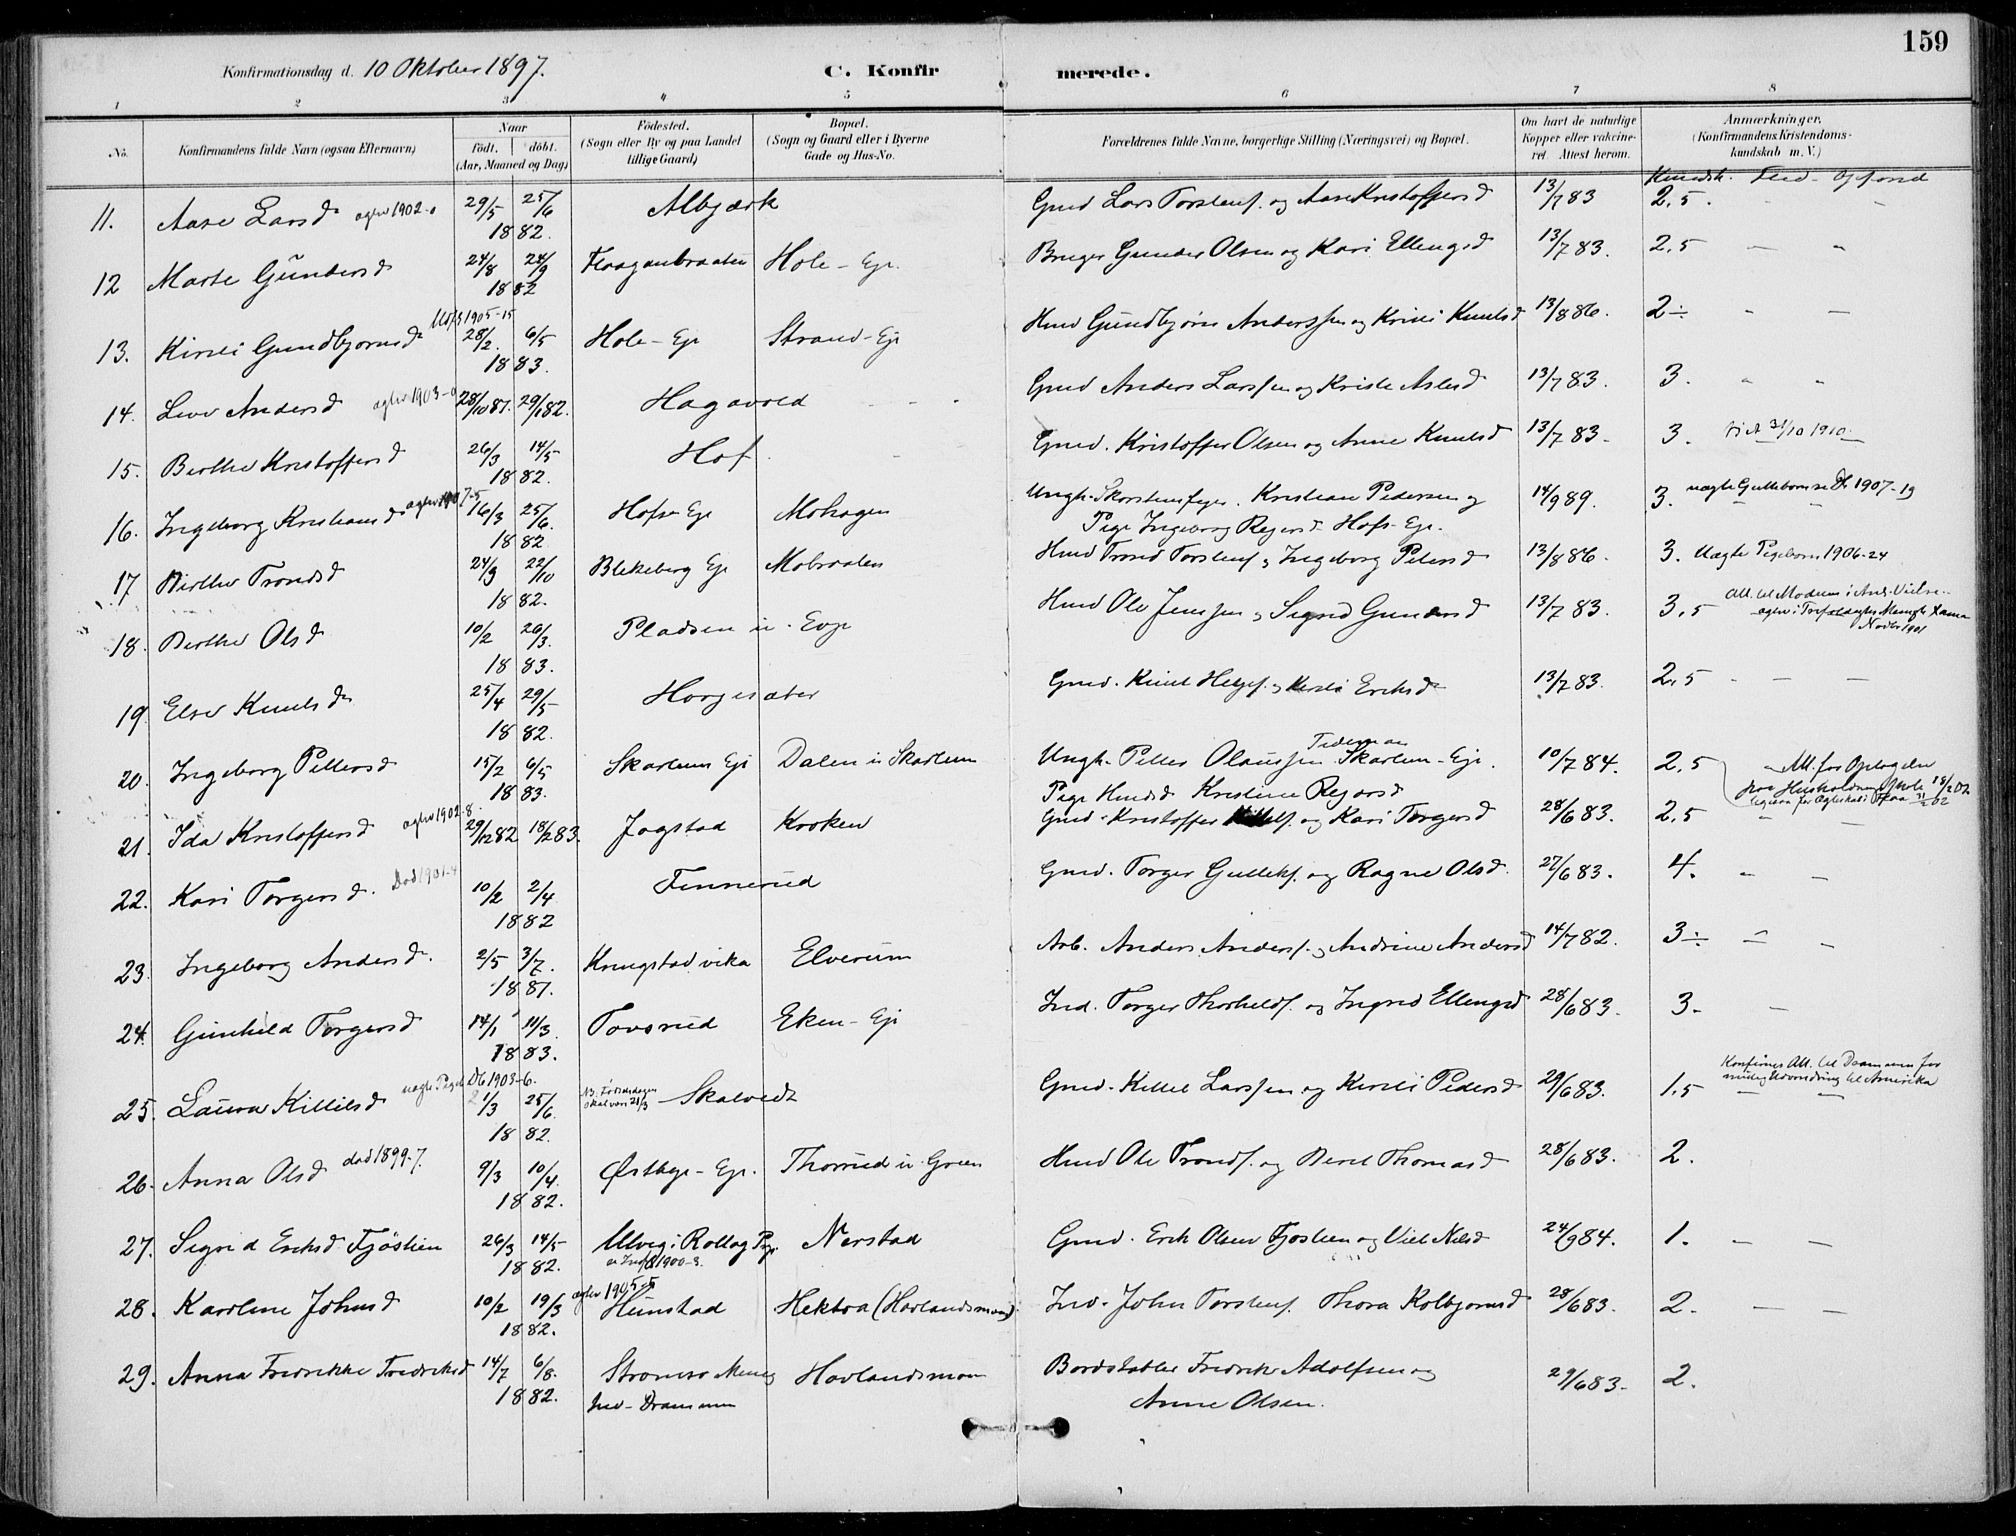 159
Konfirmationsdag d. 10 Oktober 1897.
C. Konfirmerede.
1 2 3 4 5 6 7 8
No. Konfirmandens fulde Navn (ogsaa Efternavn) Naar født. døbt. (Aar, Maaned og Dag) Fødested. (Sogn eller By og paa Landet tillige Gaard) Bopæl. (Sogn og Gaard eller i Byerne Gade og Hus-No. Forældrenes fulde Navne, borgerlige Stilling (Næringsvei) og Bopæl. Om havt de naturlige Kopper eller vakcineret. Attest herom. Anmærkninger. (Konfirmandens Kristendomskundskab m. V.)
Kundsk. Flid. Opførsel
11. Aase Larsd. 29/5 25/6 1882. Albjærk Gmd Lars Torstens. og Aase Kristoffersd 13/7 83 2.5.
12 Marte Gundersd 24/8 24/9 1882 Flaaganbraaten Hole-Eje. Bruger Gunder Olsen og Kari Ellingsd 13/7 83. 2,5
13. Kirsti Gundbjørnsd 28/2. 6/5 1883. Hole-Eje Strand-Eje Hmd Gundbjørn Anderssen og Kristi Knutsd 13/8 86. 2÷
14. Live Andersd 28/10 81. 29/1 82. Hagavold Gmd Anders Larssen og Kristi Aslesd 13/7 83. 3.
15. Berthe Kristoffersd 26/3 14/5 1882. Hof Gmd. Kristoffer Olsen og Anne Knutsd 13/7 83. 3. 31/10 1910.
16. Ingeborg Kristiansd 16/3 25/6. 1882 Hofs-Eje Mohagen Ungk. Skorstensfejer. Kristian Pedersen og
Pige Ingeborg Reiersd. Hofs-Eje. 14/9 89. 3. uægte Guttebarn se Db 1907-19
17 Berthe Trondsd 24/9 22/10 1882. Blekeberg Eje Mobraaten Hmd Trond Torstens. og Ingeborg Petersd 13/8 86. 3. Uægte Pigebarn 1906-24
18. Berthe Olsd 10/2 26/3. 1883. Pladsen u. Evje Hmd Ole Jenssen og Sigrid Gundersd 13/7 83. 3.5 Att. til Modum i Anl. Vielse.
Novbr 1901
19 Else Knutsd 25/4 29/5 1882. Horgesæter Gmd. Knut Helges. og Kirsti Eriksd 13/7 83. 2,5
20. Ingeborg Pettersd 15/2 6/5 1883. Skartum Eje Dalen u Skartum Ungk. Petter Olaussen Tideman Skartum-Eje. 10/7 84. 2.5 Att. for Optagelse
Pige Hmdsd Kristine Reiersd hos Husholdnings Skole 18/2 02
21. Ida Kristoffersd 29/12 82 18/2 83. Jogstad Kroken Gmd. Kristoffer og Kari Torgersd 28/6 83. 2.5
22. Kari Torgersd. Død 1901-4 10/2 2/4 1882 Finnerud Gmd. Torger Gulleks. og Ragne Olsd. 27/6 83. 4.
23. Ingeborg Andersd. 2/5 3/7. 1881. Krugstadvika Elverum Arb. Anders Anders. og Andrine Andersd 14/7 82. 3÷
24. Gunhild Torgersd 14/1 11/3 1883. Tovsrud Eken-Eje Ind. Torger Thorkelds. og Ingrid Ellingsd 28/6 83. 3.
25. Laura Killilsd 1/3 25/6. 1882. NB. Fødselsdagen skal være 21/3 Skalvedt Gmd. Kittel Larssen og Kirsti Pedersd 29/6 83. 1.5 Konfirmas. Att. til Drammen for
mulig Udvandring til Amerika
26. Anna Olsd død 1899-7. 9/3 10/4. 1882. Østbye-Eje. Thorrud u. Green Hmd Ole Tronds. og Beret Thomasd 28/6 83. 2.
27. Sigrid Eriksd. Fjøslien 26/3 14/5 1882. Ulvig i Rollag Pgj. Nerstad Gmd. Erik Olsen Fjøslien og Viel Nilsd 24/9 84. 1.
28. Karoline Johnsd 10/2 19/3 1882. Hunstad Hektoa (Hovlandsmoen) Ind. John Torstens. Thora Kolbjørnsd 28/6 83. 2.
29. Anna Fredrikke Fredriksd 14/7 6/8. 1882. Strømsø Menig
Drammen Hovlandsmoen Bordstabler Fredrik Adolfsen og
Anne Olsen. 29/6 83. 2.